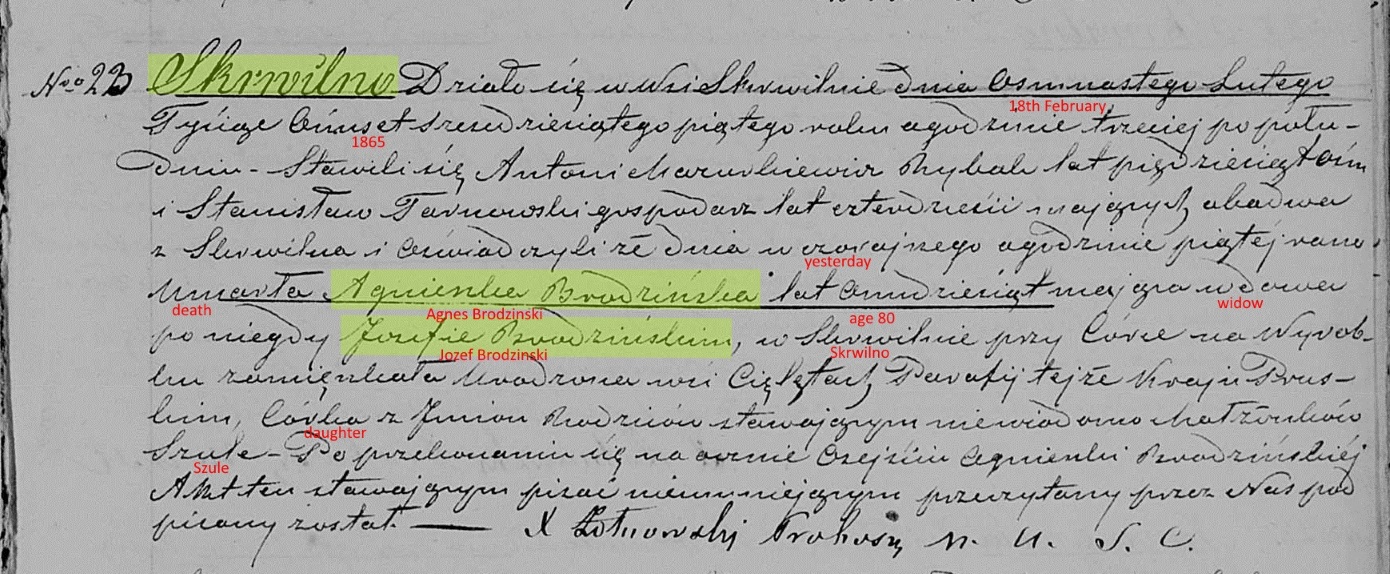 Nro 23 Skrwilno Działo się w Wsi Skrwilnie dnia Osmnastego Lutego
18th February
Tysiąc Ośmset Szesćdziesiątego piątego roku o godzinie trzeciej po połu-
1865
dniu - Stawili się Antoni Mazurkiewicz Rybak lat pięćdziesiąt Ośm
i Stanisław Tarnowski gospodarz lat czterdzieści mających obadwa
z Skrwilna i Oświadczyli że dnia wczorajszego o godzinie piątej rano
yesterday
Umarła Agnieszka Brodzińska lat Osmdziesiąt mająca wdowa
death Agnes Brodzinski age 80 widow
po niegdy Jozefie Brodzińskim, w Skrwilnie przy Córce na Wyrob-
Jozef Brodzinski Skrwilno
ku zamięszkała Urodzona wsi Parafij tejże Kraju Prus-
kim, Córka z Jmion Rodziców stawającym niewiadomo Małżonków
daughter
Szulc - Po przekonaniu się na ocznie O zejściu Agnieszki Brodzińskiéj
Szule
Akt ten stawającym pisać nieumiejącym przeczytany przez Nas pod
pisany został. — X Proboszcz U. S. C.